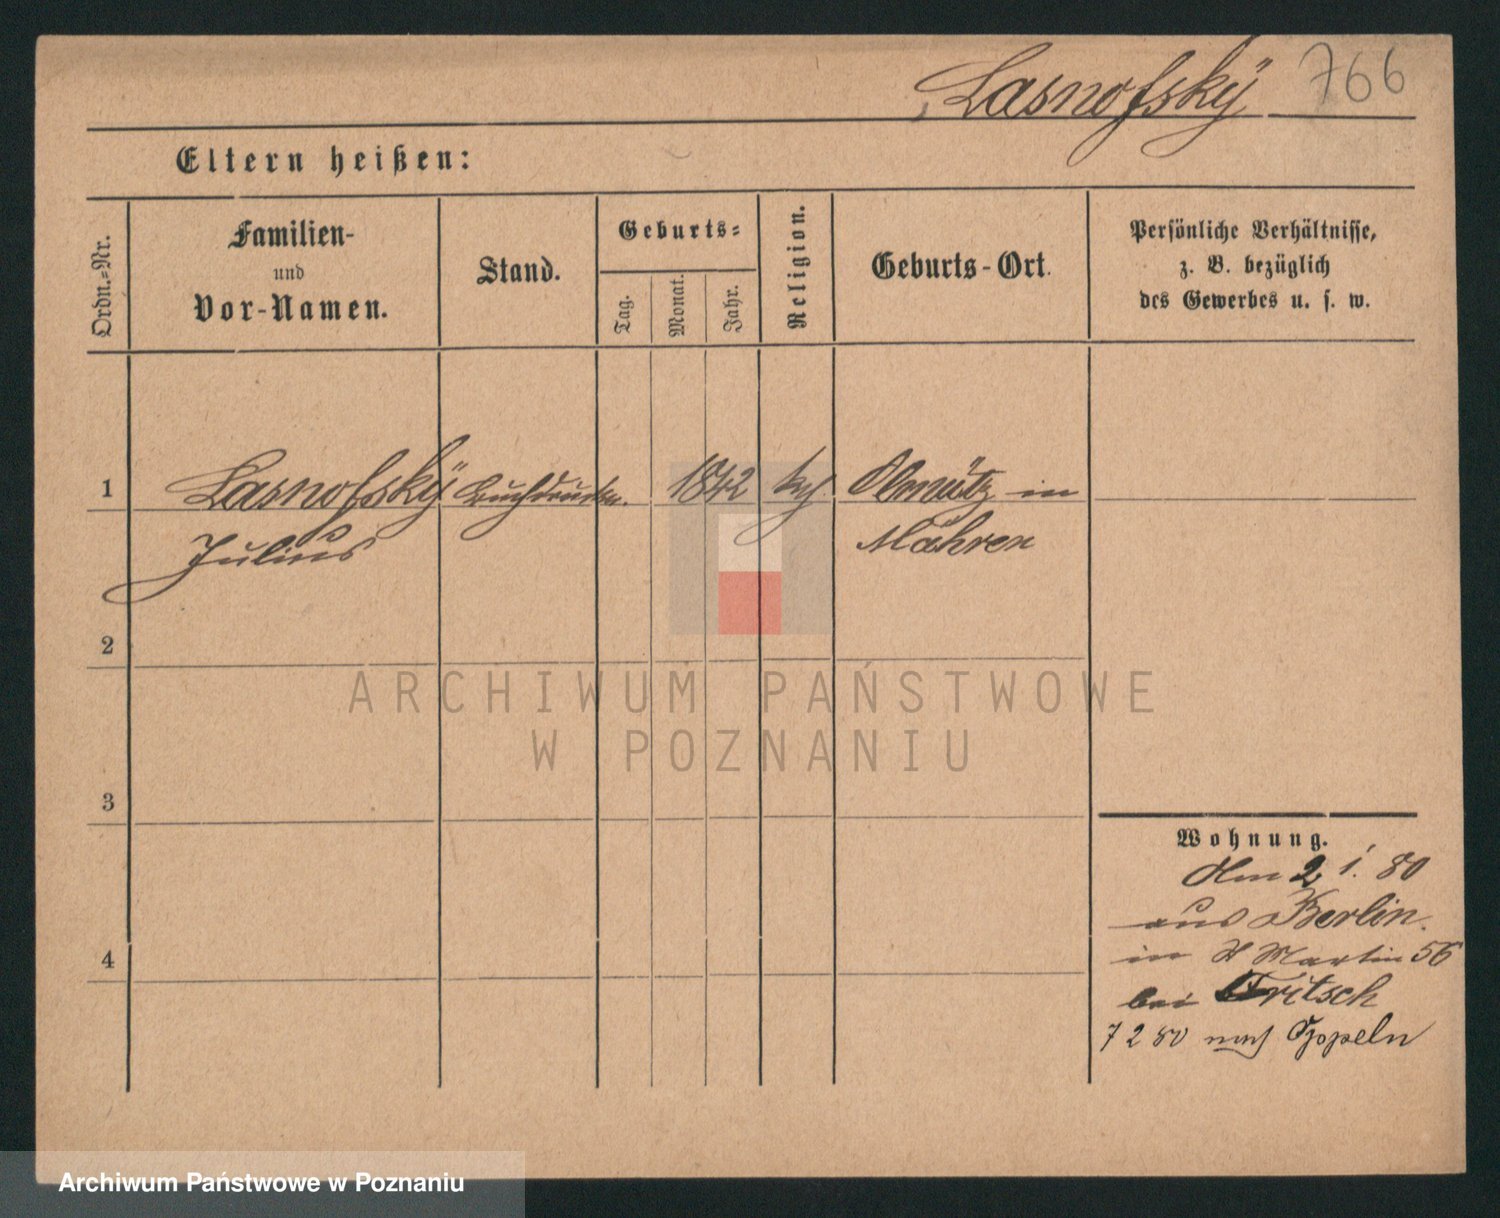 Lasnofskÿ 766
Eltern heißen:
Ordn.-Nr.
Familien-
und
Vor-Namen.
Stand.
Geburts-
Tag.
Monat.
Jahr.
Religion.
Geburts-Ort.
Persönliche Verhältnisse,
z. B. bezüglich
des Gewerbes u. s. w.
1 Lasnofskÿ Buchdrucker. 1842 Olmütz in
Julius Mähren
2
ARCHIWUM PAŃSTWOWE
W POZNANIU
3
Wohnung.
Am 2 1. 80
aus Berlin.
in St Martin 56
4
bei Fritsch
7 2 80 nach Oppeln
Archiwum Państwowe w Poznaniu